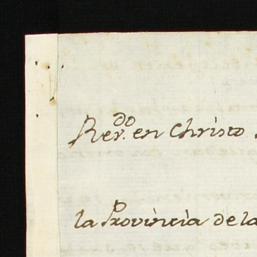 Rev.do en Christo
la Provincia de la